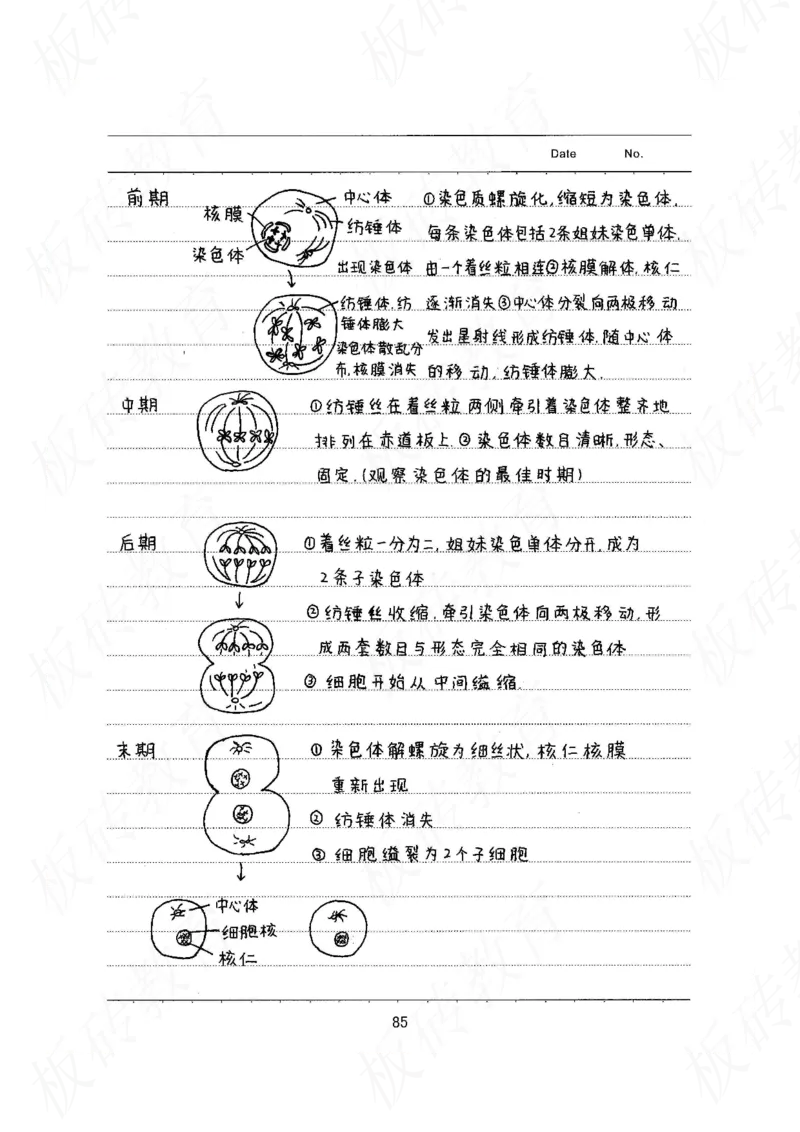 Date No.
前期
核膜
染色体
中心体
纺锤体
出现染色体
①染色质螺旋化,缩短为染色体.
每条染色体包括2条姐妹染色单体.
由一个着丝粒相连②核膜解体,核仁
逐渐消失③中心体分裂向两极移动
发出星射线形成纺锤体.随中心体
的移动,纺锤体膨大.
纺锤体.纺
锤体膨大
染色体散乱分
布,核膜消失
中期
①纺锤丝在着丝粒两侧牵引着染色体整齐地
排列在赤道板上.②染色体数目清晰,形态、
固定.(观察染色体的最佳时期)
后期
①着丝粒一分为二,姐妹染色单体分开,成为
2条子染色体
②纺锤丝收缩.牵引染色体向两极移动.形
成两套数目与形态完全相同的染色体
③细胞开始从中间缢缩.
末期
①染色体解螺旋为细丝状,核仁核膜
重新出现
②纺锤体消失
③细胞缢裂为2个子细胞
中心体
细胞核
核仁
85
板砖教育